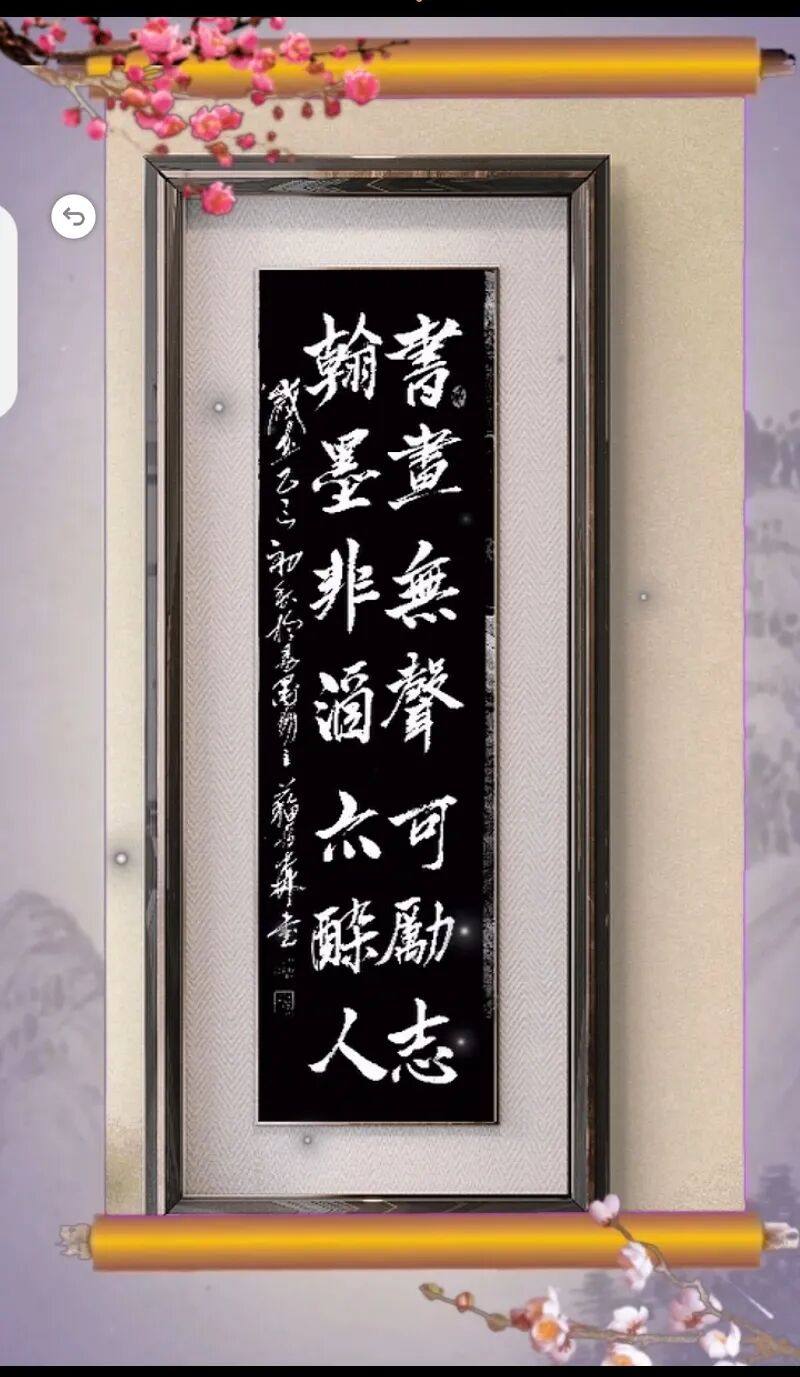 書畫無聲可勵志
翰墨非酒亦醉人
歲在乙巳初秋於墨閣主書